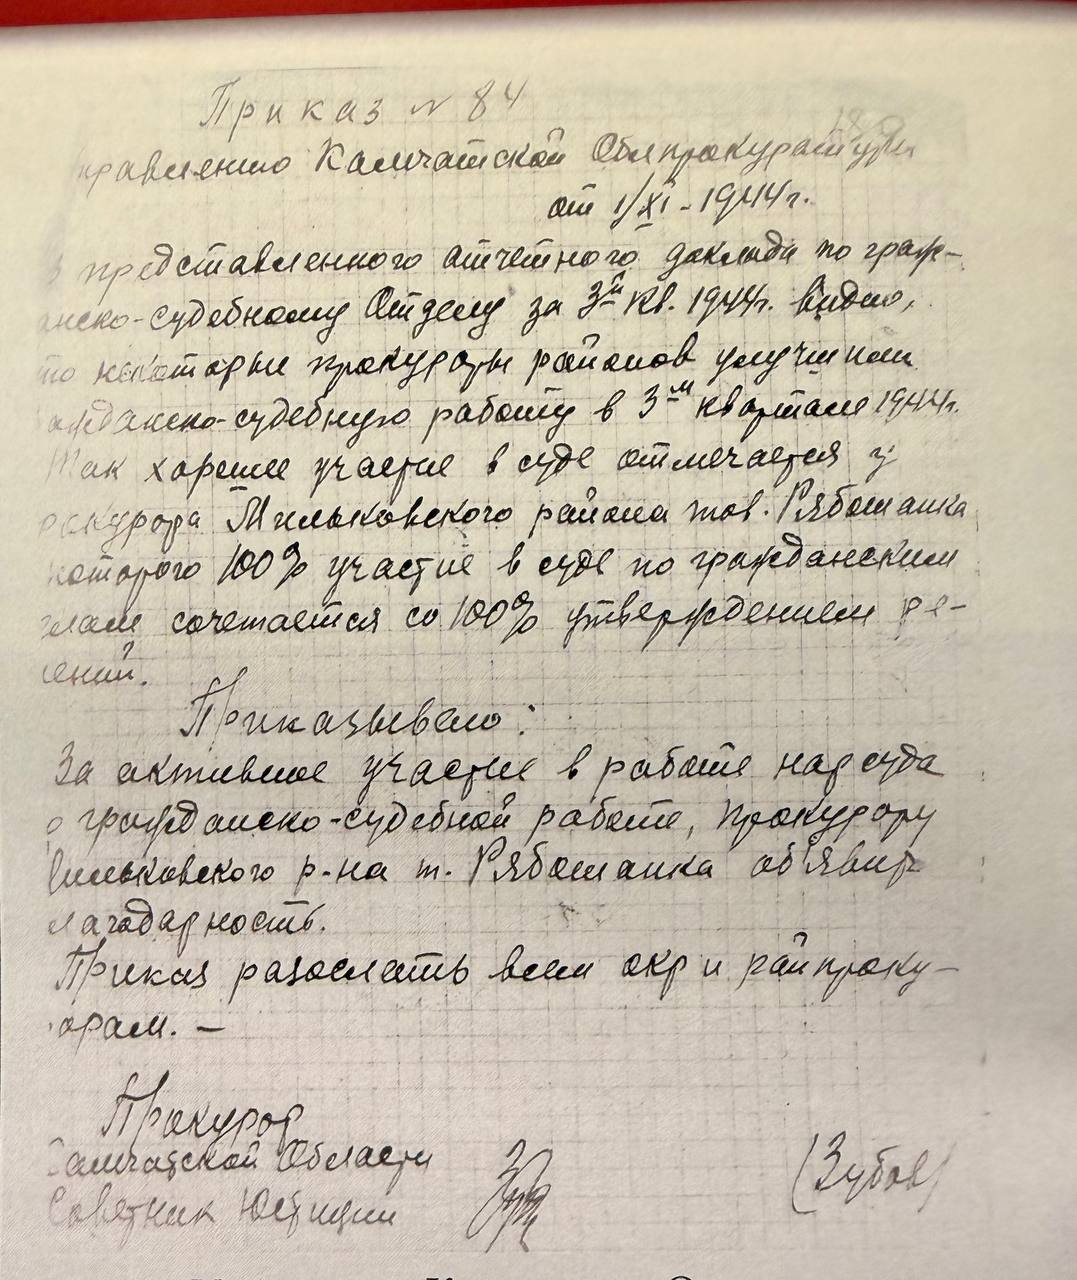 Приказ № 84
правлению Камчатской Облпрокуратуры
от 1/XI - 1944г.
представленного отчетного доклада по граж-
анско-судебному Отделу за 3й кв. 1944г. видно,
то некоторые прокуроры районов улучшили
ажданско-судебную работу в 3м квартале 1944г.
Так хорошее участие в суде отмечается у
рокурора Мильковского района тов. Рябошапка
которого 100% участие в суде по гражданским
елам сочетается со 100% утверждением ре-
ений.
Приказываю:
За активное участие в работе нарсуда
о гражданско-судебной работе, прокурору
Мильковского р-на т. Рябошапка об'явить
лагодарность.
Приказ разослать всем окр и райпроку-
орам. —
Прокурор
Камчатской Области
Советник Юстиции
(Зубов)